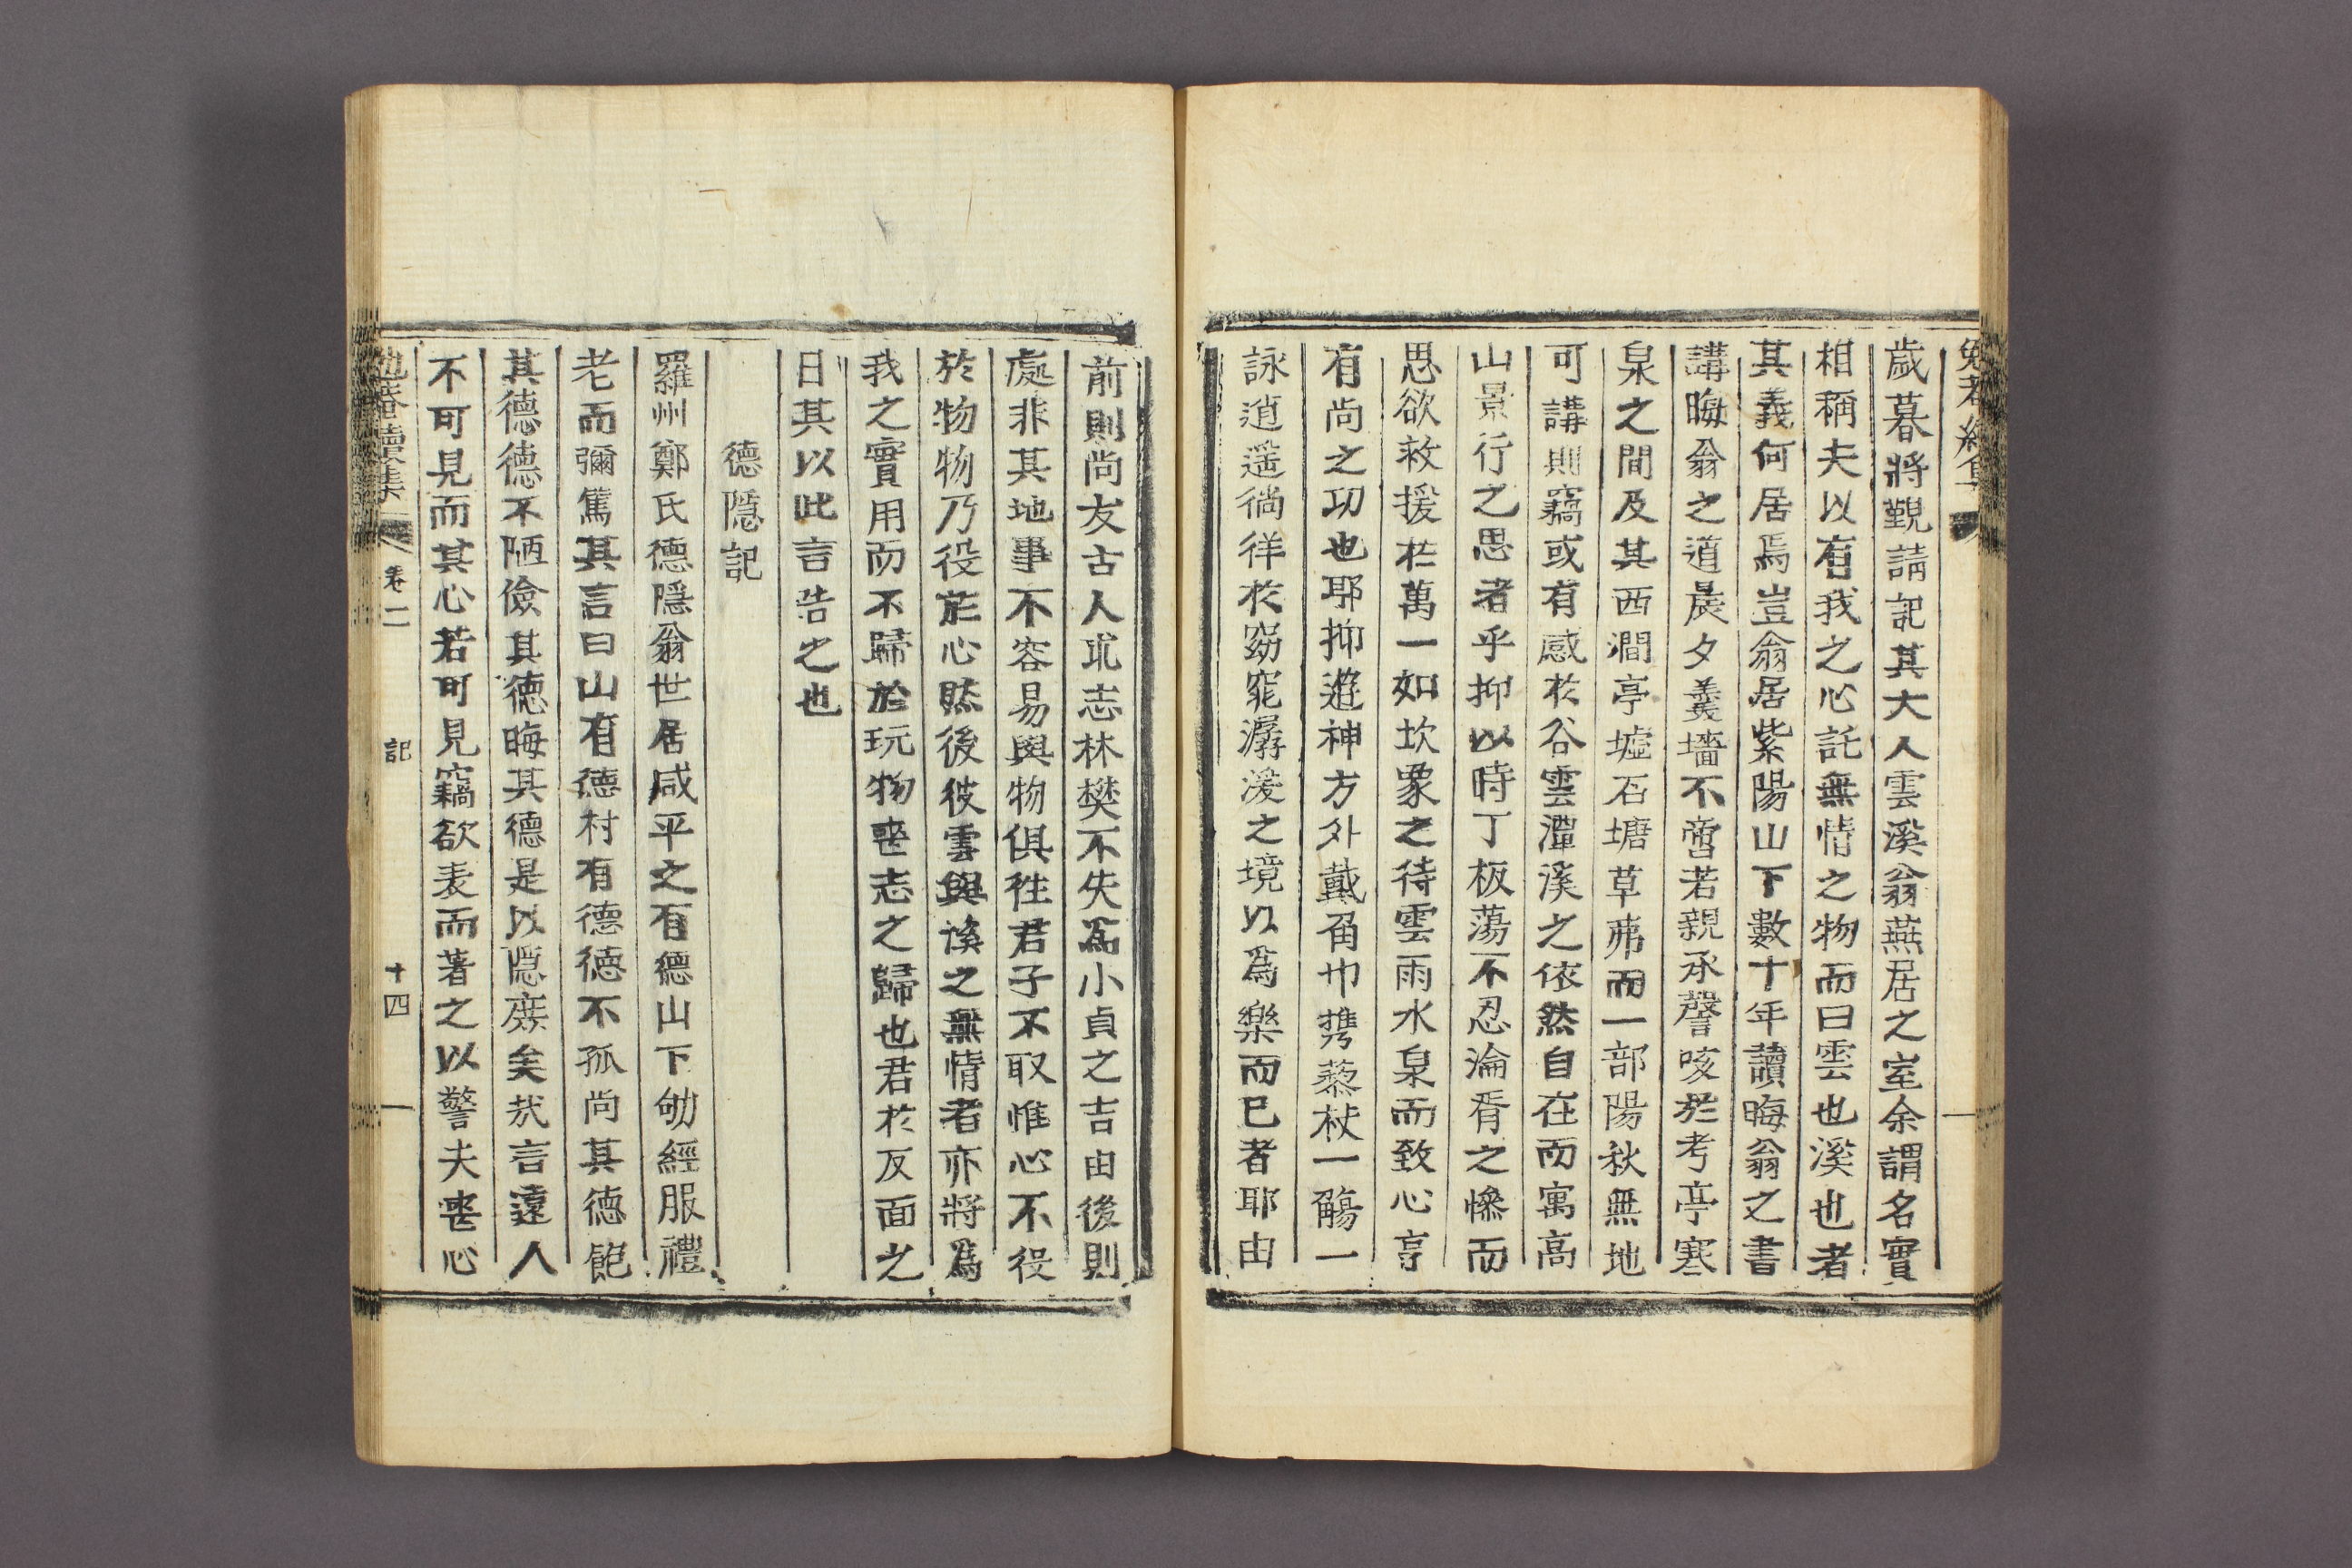 歲暮將覲請記其大人雲溪翁燕居之室余謂名實
相稱夫以有我之心託無情之物而曰雲也溪也者
其義何居焉豈翁居紫陽山下數十年讀晦翁之書
講晦翁之道晨夕羹墻不啻若親承謦咳於考亭寒
泉之間及其西澗亭墟石塘草茀而一部陽秋無地
可講則竊或有感於谷雲潭溪之依然自在而寓高
山景行之思者乎抑以時丁板蕩不忍淪胥之慘而
思欲救援於萬一如坎象之待雲雨水泉而致心亨
有尚之功也耶抑遊神方外戴角巾携藜杖一觴一
詠逍遥徜徉於窈窕潺湲之境以爲樂而已者耶由
前則尚友古人耿志林樊不失爲小貞之吉由後則
處非其地事不容易與物俱徃君子不取惟心不役
於物物乃役於心然後彼雲與溪之無情者亦將爲
我之實用而不歸於玩物喪志之歸也君於反面之
日其以此言告之也
德隱記
羅州鄭氏德隱翁世居咸平之有德山下劬經服禮
老而彌篤其言曰山有德村有德德不孤尚其德飽
其德德不陋儉其德晦其德是以隱廢矣哉言遠人
不可見而其心若可見竊欲表而著之以警夫喪心
卷二
記
十四